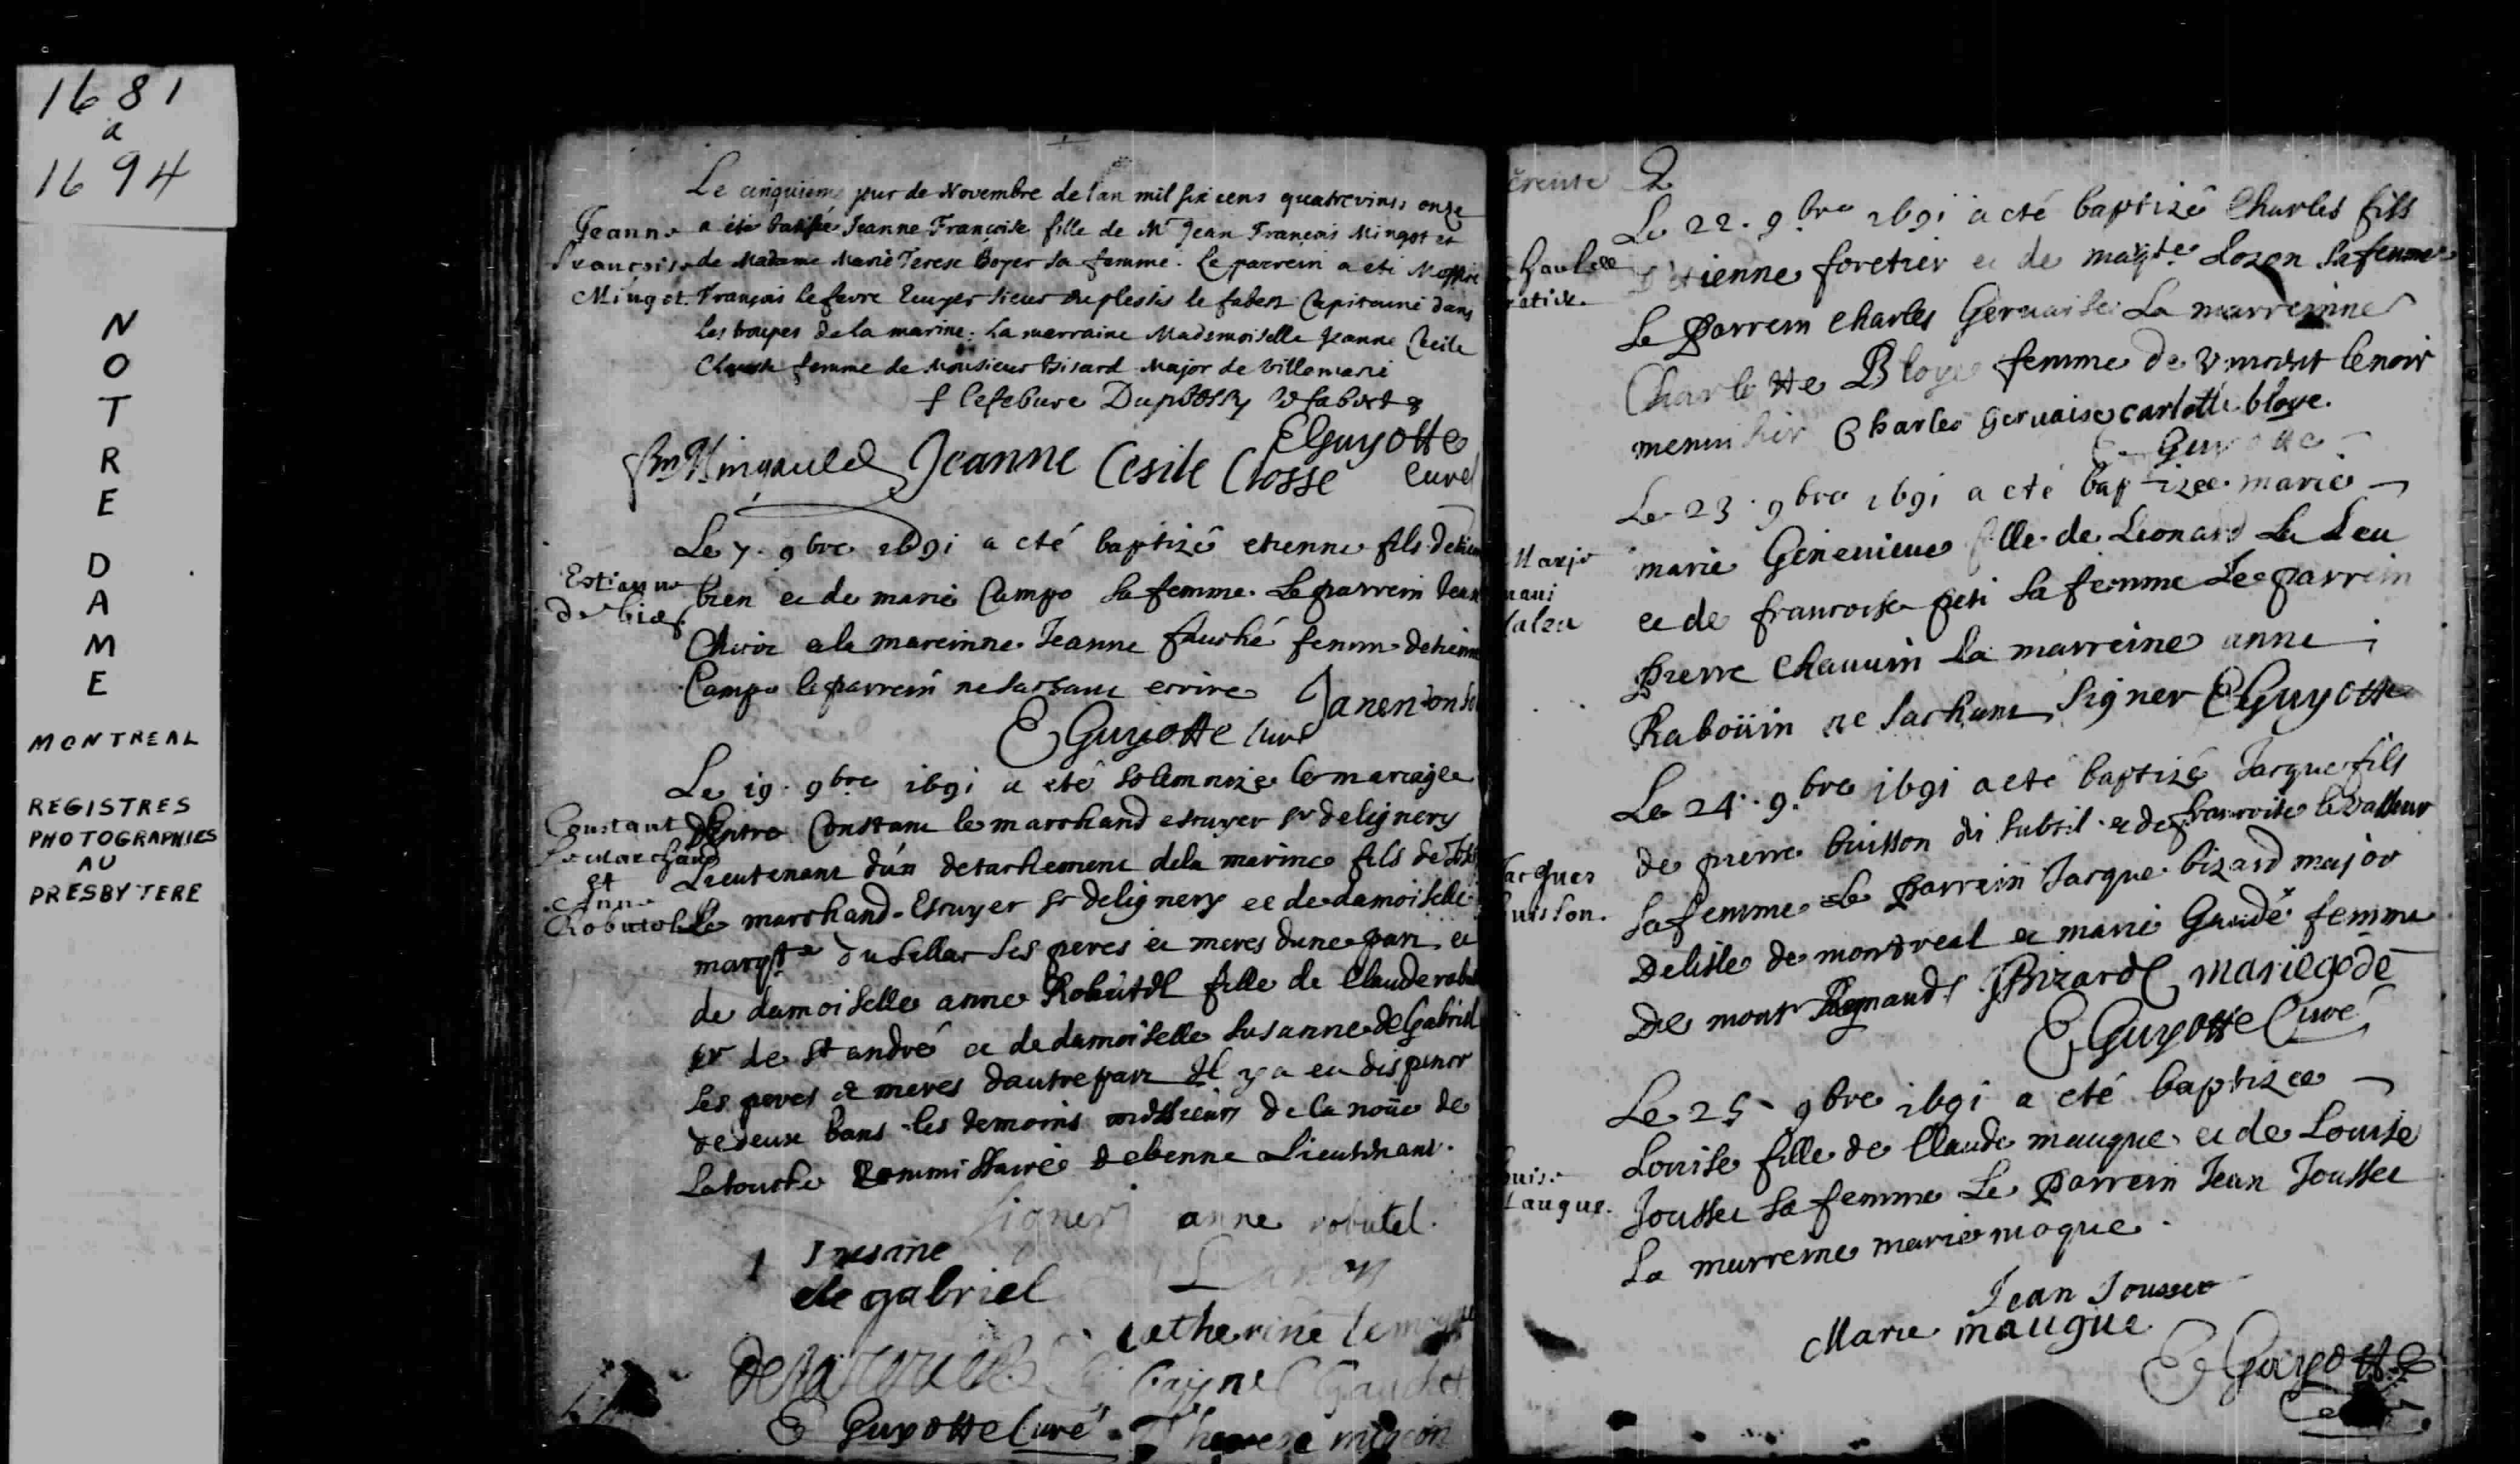 1681
a
1694
NOTRE
DAME
MONTREAL
REGISTRES
PHOTOGRAPHIES
AU
PRESBYTERE
Le cinquieme jour de Novembre de l'an mil six cens quatrevints onze
a été batisée Jeanne Françoise fille de Mr Jean François Mingot et
de Madame Marie Terese Boyer sa femme. Le parrein a eté Messire
François lefevre Ecuyer sieur duplessis le faber Capitaine dans
les troupes de la marine. La marraine Mademoiselle Jeanne Cecile
femme de Monsieur Bisard Major de Villemarie
Jeanne
Françoise
Mingot
f lefebure faber
EGuyotte
Curé
Jeanne Cesile Closse
Le 7. 9bre 1691 a eté baptizé etienne fils
bien et de marie Campo sa femme. Le parrein Jean
a la mareinne Jeanne fauché femm
Campo le parrein ne sachant ecrire
Estienne
de bien
E Guyotte Curé
Le 19. 9bre 1691 a eté solemnizé le mariage
D'Entre Constant le marchand escuyer sr de lignery
Lieutenant d'un detachement de la marine fils de
Le marchand Escuyer sr de lignery et de damoiselle
margte ses peres et meres dune part et
de damoiselle anne Robutel fille de Claude
sr de st andré et de damoiselle Susanne de Gabriel
ses peres et meres dautre part Il y a eu dispence
de deux bans les temoins messieurs de la noüe de
Latouche Commissaire debenne Lieutenant.
Constant
Le marchand
et
Anne
Robutel
signer anne robutel.
de gabriel
catherine
Gaudet
E Guyotte Curé Therese
2
Le 22. 9bre 1691 a eté baptizé Charles fils
D'etienne foretier et de margte Lozon sa femme
Le Parrein Charles Gervaise La marreinne
Charlotte Bloye femme de vincent lenoir
menuisier Charles Gervaise carlotte bloye.
E Guyotte
Le 23. 9bre 1691 a eté baptizee marie
marie Genevieve fille de Leonard La Leu
et de francoise peti sa femme Le parrein
pierre Chauvin La marreine anne
Raboüin ne sachant signer E Guyotte
Le 24. 9bre 1691 a eté baptizé Jacque fils
de pierre buisson dit subtil et de francoise le vasseur
sa femme Le Parrein Jacque bizard major
De lisle de montreal et marie Gaudé femme
De mont JBizard mariegode
E Guyotte Curé
acques
uisson.
Le 25 9bre 1691 a eté baptizee
Louise fille de Claude maugue et de Louise
Jousset sa femme Le Parrein Jean Jousset
La marreine marie mogue.
ouise
augue.
Jean Jousset
Marie maugue
E Guyotte